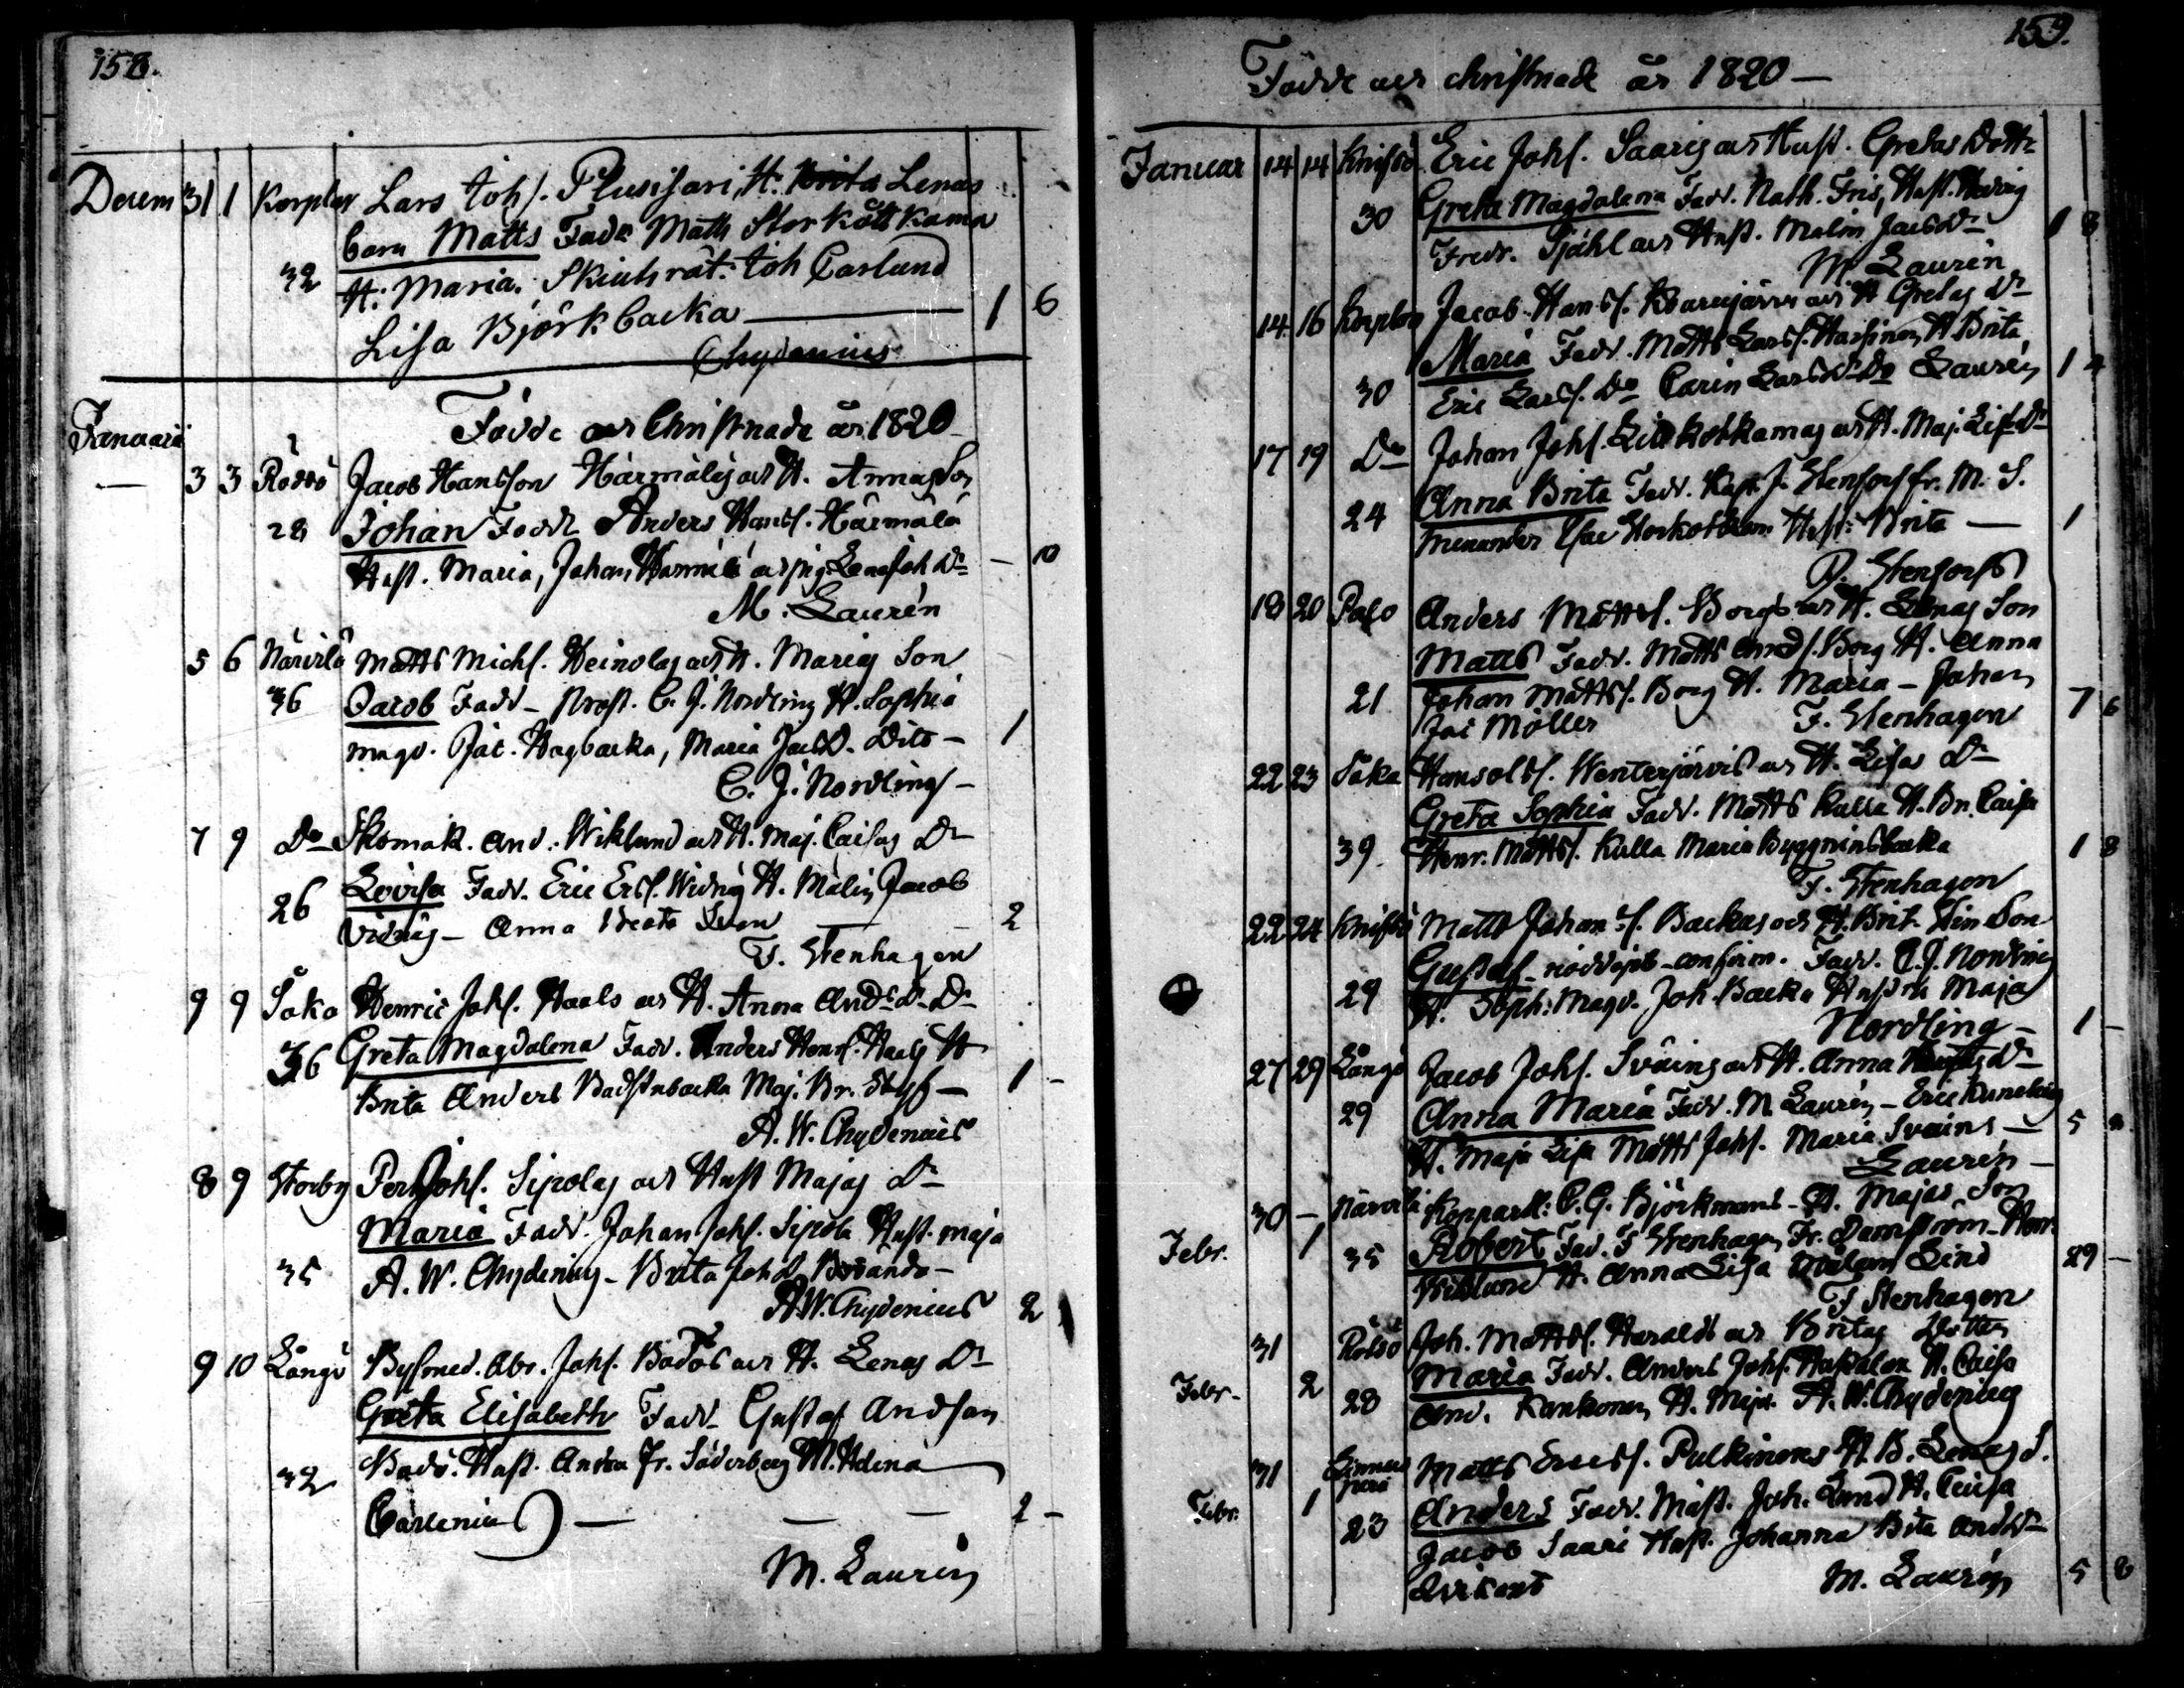 158.
Decem 31 1 Korplax Lars Johs. Plusisari, H. Lenas
barn Matts Fadr Matts Storkåttkama
32 H. Maria. Joh Carlund
Lisa Björkbacka — 1 6
Chydenius
Januari
Födde och Christnade år 1820
3 3 Rödsö Jacob Hansson Härmäläs och H. Annas Son
28 Johan Faddr Anders Hanss. Härmälä
Hust. Maria, Johan Härmälä och pig. Lena Joh Dr — 10
M. Laurén
5 6 Närvilä Matts Michs. Heinolas och H. Marias Son
36 Jacob Fadd. Prost. C. J. Nordling H. Sophia
Magd. Jac. Hagbacka, Maria Jacobsd. Dito — 1
C. J. Nordling —
7 9 Do Skomak. And. Wiklund och H. Maj. Caisas Dr
26 Lovisa Fadd. Eric Erss. Widnäs H. Malin Jacob
Vidnäs — Anna Beata — 2
F. Stenhagen
9 9 Såka Henric Johs. Haals och H. Anna Ands Dr Dr
36 Greta Magdalena Fadd. Anders Henrs. Haals H
Brita Anders Badstubacka Maj. Br. — 1 —
A. W. Chydenius
8 9 Storby Pehr Johs. Sipolas och Hust Majas Dr
Maria Fadd. Johan Johs. Sipola Hust. Maja
35 A. W. Chydenius — Brita Johsd. —
A. W. Chydenius 2
9 10 Långö Bysmed. Abr. Johs. Badös och H. Lenas Dr
Greta Elisabeth Fadd. Gustaf Andson
32 Badö. Hust. Anna Fr. Söderberg M. Helena
Carlenius — — — 2 —
M. Laurén
159.
Födde och christnade år 1820 —
Januar 14 14 Knifsö Eric Johs. Saaris och Hust. Gretas Dottr
30 Greta Magdalena Fadd. Nath. Friis, Hust. Hedvig
Fredr. Sjöhl och Hust. Malin Jacobsdr 1 8
M Laurén
14 16 Korplax Jacob Hanss. och H Gretas Dr
Maria Fadd. Matts Larss. H. Brita
30 Eric Larss. Do Carin Larsdr Do Laurén 1 4
17 19 Do Johan Johs. Lillkåtkamas och H. Maj. Lis. Dr
24 Anna Brita Fadd. Kapl. J. Stenfors fr. M. S.
Storkåtkam. Hust: Brita — 1
P. Stenfors
18 20 Palo Anders Mattss. Borgs och H. Lenas Son
Matts Fadd. Matts Ands. Borg H. Anna
21 Johan Mattss. Borg H. Maria — Johan
Jac Möller F. Stenhagen 7 6
22 23 Såka Hans Wenterjärvis och H. Lisas Dr
Greta Sophia Fadd. Matts Kulla H. Br. Caisa
39 Henr. Mattss. Kulla Maria Byggninsbacka 1 8
F. Stenhagen
22 24 Knifsö Matts Johan s. Backas och H. Brit. Son
29 Gustaf — nöddöpt — confirm. Fadd. C. J. Nordling
H. Soph: Magd. Joh. Backa Hustru Maja
Nordling — 1 —
27 29 Långö Jacob Johs. Sväins och H. Anna Dr
29 Anna Maria Fadd. M Laurén — Eric Runeberg
H. Maja Lisa Matts Johs. Maria Sväins — 5
Laurén —
30 — Närvilä Kopparsl: C. G. Björkmans — H. Majas Son
Febr. 1 35 Robert Fad. F Stenhagen Fr. Damström. Henr.
Wiklund H. Anna Lisa Lind 29 —
F Stenhagen
31 Rödsö Joh. Mattss. Haralds och Britas Dotter
Febr — 2 28 Maria Fadd. Anders Johs. H. Caisa
And. Kankonen H. Maja. A. W. Chydenius
31 Matts Ericss. Pulkinens H B. Lenas S.
Febr. 1 23 Anders Fadd. Mäst. Joh. Lund H. Caisa
Jacob Saari Hust. Johanna Brita Andsdr
M. Laurén 5 8